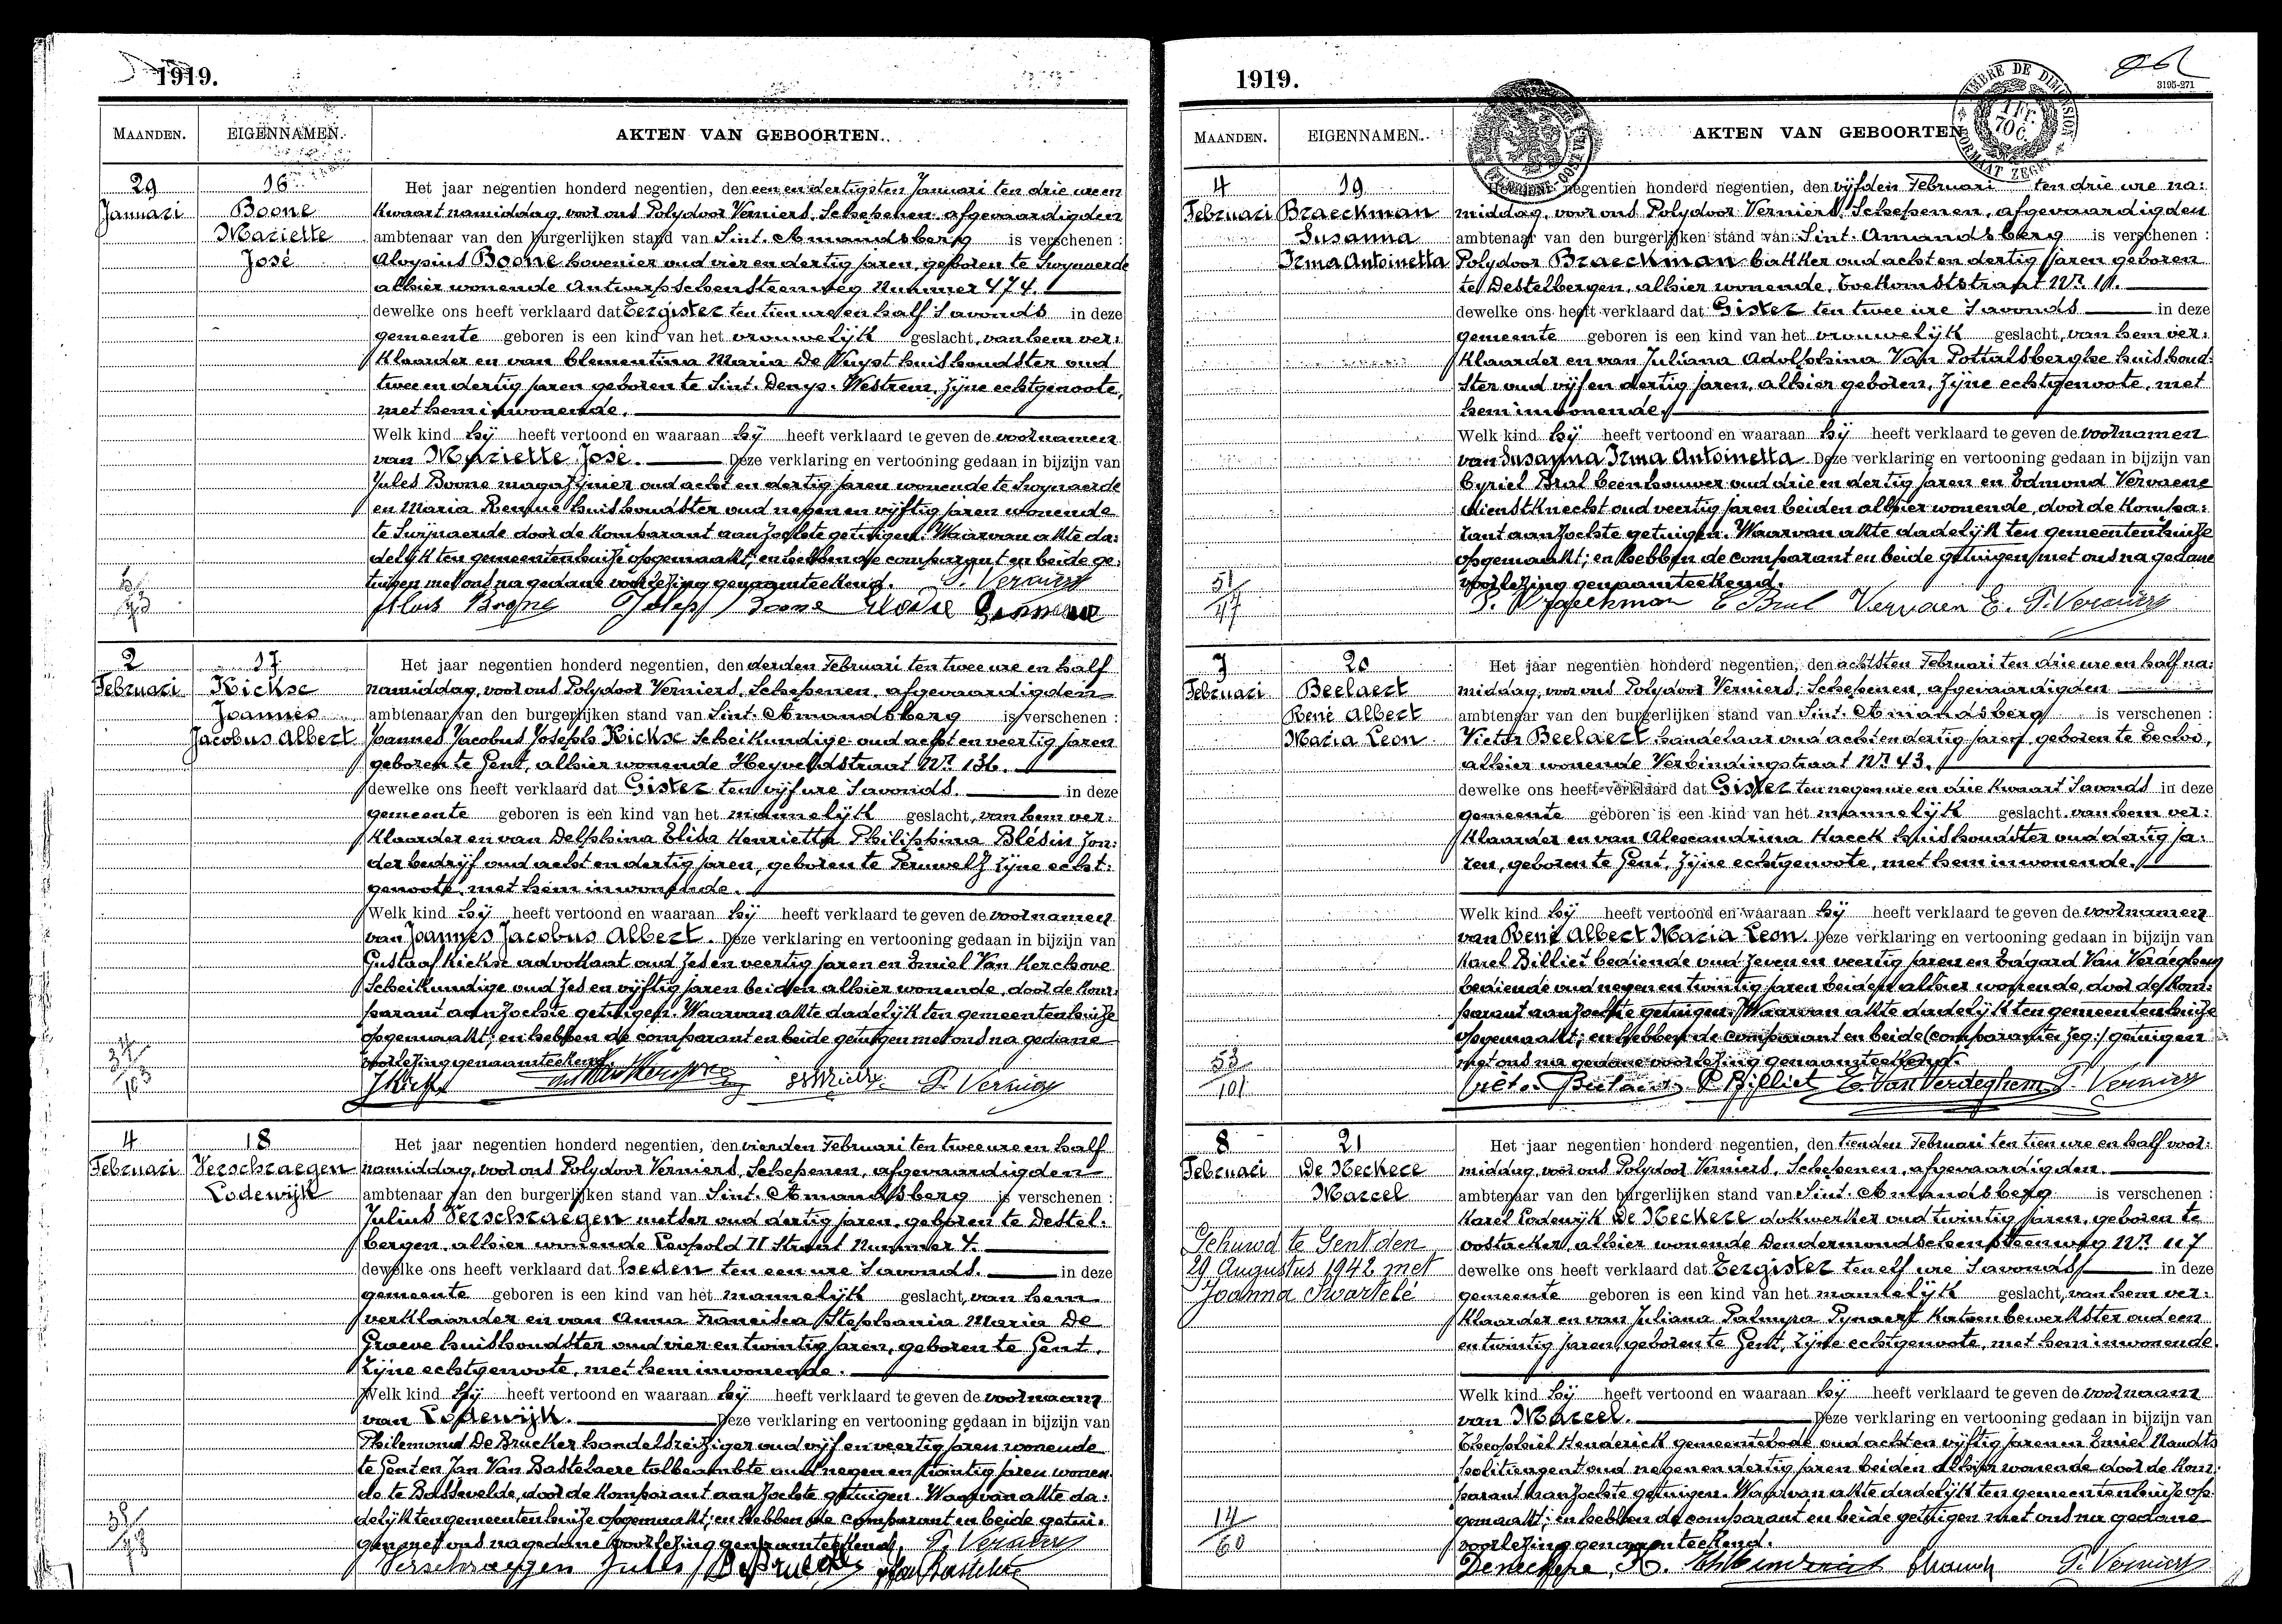 1919.
MAANDEN. EIGENNAMEN. AKTEN VAN GEBOORTEN.
29 Januari
16
Boone
Mariette
José
Het jaar negentien honderd negentien, den een en dertigsten Januari ten drie ure en
kwaart namiddag, voor ons Polydoor Verniers, Schepenen, afgevaardigden
ambtenaar van den burgerlijken stand van Sint. Amandsberg is verschenen :
Aloysius Boone hovenier oud vier en dertig jaren, geboren te Swynaerde
alhier wonende Antwerpschensteenweg Nummer 474.
dewelke ons heeft verklaard dat Eergister ten tien ure en half 's avonds in deze
gemeente geboren is een kind van het vrouwelijk geslacht, van hem ver:
klaarder en van Clementina Maria De Vuyst huishoudster oud
twee en dertig jaren geboren te Sint. Denys. Westrem, zijne echtgenoote,
met hem inwonende.
Welk kind hij heeft vertoond en waaraan hij heeft verklaard te geven de voornamen
van Mariette José. Deze verklaring en vertooning gedaan in bijzijn van
Jules Boone magazijnier oud acht en dertig jaren wonende te Swynaerde
en Maria huishoudster oud negen en vijftig jaren wonende
te Swijnaerde door de komparant aanzochte getuigen. Waarvan akte da:
delijk ten gemeentenhuize opgemaakt; en hebben de comparant en beide ge:
tuigen met ons na gedane voorlezing genaamteekend. P. Verniers
Alois Boone Joseph Boone
2 Februari
17
Kickse
Joannes
Jacobus Albert
Het jaar negentien honderd negentien, den derden Februari ten twee ure en half
namiddag, voor ons Polydoor Verniers, Schepenen, afgevaardigden
ambtenaar van den burgerlijken stand van Sint. Amandsberg is verschenen :
Joannes Jacobus Joseph Kickse scheikundige oud acht en veertig jaren
geboren te Gent, alhier wonende Heyveldstraat Nr 136.
dewelke ons heeft verklaard dat Gister ten vijf ure 's avonds. in deze
gemeente geboren is een kind van het mannelijk geslacht, van hem ver:
klaarder en van Delphina Elisa Henrietta Philippina Blésin zon:
der bedrijf oud acht en dertig jaren, geboren te Peruwelz zijne echt:
genoote, met hem inwonende.
Welk kind hij heeft vertoond en waaraan hij heeft verklaard te geven de voornamen
van Joannes Jacobus Albert. Deze verklaring en vertooning gedaan in bijzijn van
Gustaaf Kickse advokaat oud zes en veertig jaren en Emiel Van Kerchove
scheikundige oud zes en vijftig jaren beiden alhier wonende, door de kom:
parant aanzochte getuigen. Waarvan akte dadelijk ten gemeentenhuize
opgemaakt; en hebben de comparant en beide getuigen met ons na gedane
voorlezing genaamteekend.
P. Verniers
4 Februari
18
Verschraegen
Lodewijk
Het jaar negentien honderd negentien, den vierden Februari ten twee ure en half
namiddag, voor ons Polydoor Verniers, Schepenen, afgevaardigden
ambtenaar van den burgerlijken stand van Sint. Amandsberg is verschenen :
Julius Verschraegen metser oud dertig jaren, geboren te Destel.
bergen, alhier wonende Leopold II Straat Nummer 4.
dewelke ons heeft verklaard dat heden ten een ure 's avonds. in deze
gemeente geboren is een kind van het mannelijk geslacht, van hem
verklaarder en van Anna Francisca Stephania Maria De
Graeve huishoudster oud vier en twintig jaren, geboren te Gent,
zijne echtgenoote, met hem inwonende.
Welk kind hij heeft vertoond en waaraan hij heeft verklaard te geven de voornaam
van Lodewijk. Deze verklaring en vertooning gedaan in bijzijn van
Philemond De Brucker handelsreiziger oud vijf en veertig jaren wonende
te Gent en Jan Van Bastelaere tolbeambte oud negen en twintig jaren wonen
de te Bassevelde, door de komparant aanzochte getuigen. Waarvan akte da:
delijk ten gemeentenhuize opgemaakt; en hebben de comparant en beide getui:
gen met ons na gedane voorlezing genaamteekend. P. Verniers
Verschraegen Jules
1919.
3195-271
TIMBRE DE DIMENSION
1 Fr. 70 C.
FORMAAT ZEGEL
MAANDEN. EIGENNAMEN. AKTEN VAN GEBOORTEN
4 Februari
19
Braeckman
Susanna
Irma Antoinetta
Het jaar negentien honderd negentien, den vijfden Februari ten drie ure na:
middag, voor ons Polydoor Verniers, Schepenen, afgevaardigden
ambtenaar van den burgerlijken stand van Sint. Amandsberg is verschenen :
Polydoor Braeckman bakker oud acht en dertig jaren geboren
te Destelbergen, alhier wonende, Toekomststraat Nr 11.
dewelke ons heeft verklaard dat Gister ten twee ure 's avonds in deze
gemeente geboren is een kind van het vrouwelijk geslacht, van hem ver:
klaarder en van Juliana Adolphina Van Pottelsberghe huishoud:
ster oud vijf en dertig jaren, alhier geboren, zijne echtgenoote, met
hem inwonende.
Welk kind hij heeft vertoond en waaraan hij heeft verklaard te geven de voornamen
van Susanna Irma Antoinetta. Deze verklaring en vertooning gedaan in bijzijn van
Cyriel Bral beenhouwer oud drie en dertig jaren en Edmond Vervaene
dienstknecht oud veertig jaren beiden alhier wonende, door de kompa:
rant aanzochte getuigen. Waarvan akte dadelijk ten gemeentenhuize
opgemaakt; en hebben de comparant en beide getuigen met ons na gedane
voorlezing genaamteekend.
51/47
P. Braeckman C Bral Vervaen E. P. Verniers
7 Februari
20
Beelaert
René Albert
Maria Leon
Het jaar negentien honderd negentien, den achtsten Februari ten drie ure en half na:
middag, voor ons Polydoor Verniers, Schepenen, afgevaardigden
ambtenaar van den burgerlijken stand van Sint. Amandsberg is verschenen :
Victor Beelaert handelaar oud acht en dertig jaren, geboren te Eecloo,
alhier wonende Verbindingstraat Nr 43.
dewelke ons heeft verklaard dat Gister ten negen ure en drie kwaart 's avonds in deze
gemeente geboren is een kind van het mannelijk geslacht van hem ver:
klaarder en van Alexandrina Haeck huishoudster oud dertig ja:
ren, geboren te Gent, zijne echtgenoote, met hem inwonende.
Welk kind hij heeft vertoond en waaraan hij heeft verklaard te geven de voornamen
van René Albert Maria Leon. Deze verklaring en vertooning gedaan in bijzijn van
Karel Billiet bediende oud zeven en veertig jaren en Edgard Van Verdeghem
bediende oud negen en twintig jaren beiden alhier wonende, door de kom:
parant aanzochte getuigen. Waarvan akte dadelijk ten gemeentenhuize
opgemaakt; en hebben de comparant en beide (comparanten zeg:) getuigen
met ons na gedane voorlezing genaamteekend.
53/101
Vict. Beelaert C Billiet E. Van Verdeghem P. Verniers
8 Februari
21
De Neckere
Marcel
Gehuwd te Gent den
29 Augustus 1942 met
Joanna Swartelé
Het jaar negentien honderd negentien, den tienden Februari ten tien ure en half voor:
middag, voor ons Polydoor Verniers, Schepenen, afgevaardigden.
ambtenaar van den burgerlijken stand van Sint. Amandsberg is verschenen :
Karel Lodewijk De Neckere dokwerker oud twintig jaren, geboren te
Oostacker, alhier wonende Dendermondschensteenweg Nr 117
dewelke ons heeft verklaard dat Eergister ten elf ure 's avonds in deze
gemeente geboren is een kind van het mannelijk geslacht, van hem ver:
klaarder en van Juliana Palmyra Pynaert katoenbewerkster oud een
en twintig jaren, geboren te Gent, zijne echtgenoote, met hem inwonende.
Welk kind hij heeft vertoond en waaraan hij heeft verklaard te geven de voornaam
van Marcel. Deze verklaring en vertooning gedaan in bijzijn van
Theophiel Henderick gemeentebode oud acht en vijftig jaren en Emiel Naudts
politieagent oud negen en dertig jaren beiden alhier wonende door de kom:
parant aanzochte getuigen. Waarvan akte dadelijk ten gemeentenhuize op:
gemaakt; en hebben de comparant en beide getuigen met ons na gedane
voorlezing genaamteekend.
14/60
P. Verniers